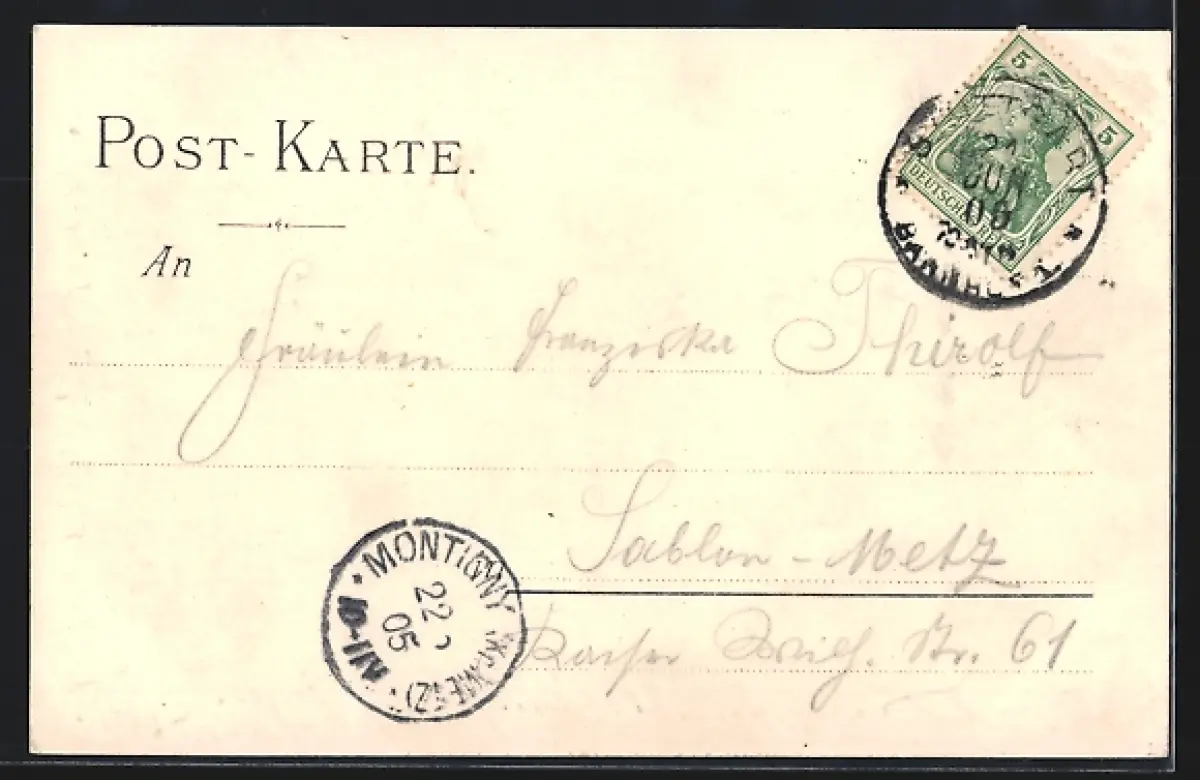 POST-KARTE.
5 5
DEUTSCHES
21
JUN
05
BAHNHOF
An
Fräulein Franziska Thirolf
Sablon - Metz
Kaiser Str. 61
MONTIGNY (Kr. METZ)
22
05
10-11V